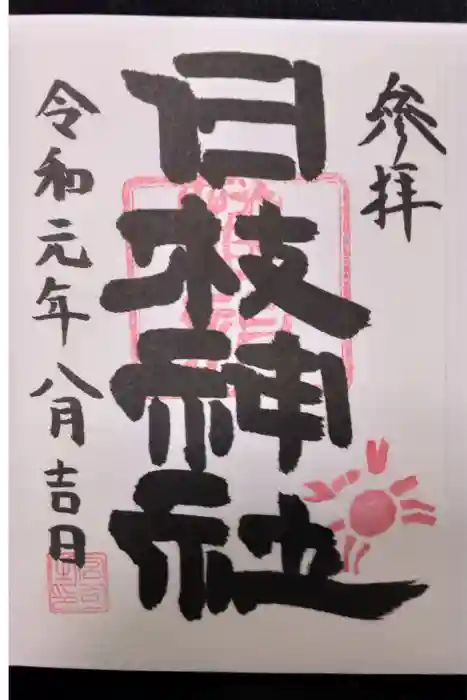 參拝
日枝神社
令和元年八月吉日